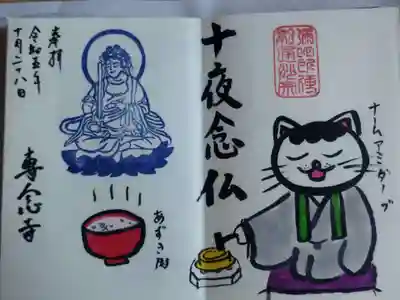 十夜念仏
ナムアミダーブ
奉拝
令和五年
十月二十八日
専念寺
あずき粥